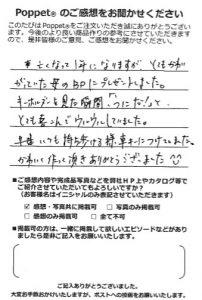 Poppet® のご感想をお聞かせください
このたびはPoppet®をご注文いただき誠にありがとうござい
ます。今後のより良い商品作りの参考にさせていただきます
ので、是非皆様のご意見、ご感想をお聞かせください。
亡くなって1年になりますが、とてもかわ
がっていた母のBDにプレゼントしました。
キーホルダーを見た瞬間「〇〇だ!」って
とても喜んでウルウルしていました。
早速いつも持ち歩ける様、車キーにつけてました。
かわいく作って頂きありがとうございました
■ご感想内容や完成品写真などを弊社HP上やカタログ等で
ご紹介させていただいてもよろしいですか?
(お客様名はイニシャルのみ表記させていただきます)
☑ 感想・写真共に掲載可 □ 写真のみ掲載可
□ 感想のみ掲載可 □ 全て不可
■掲載可の方は、一緒に掲載して欲しいエピソードなどがあり
ましたら是非ご記入をお願いいたします。
ご記入ありがとうございました。
大変お手数おかけいたしますが、ポストへの投函をお願いいたします。